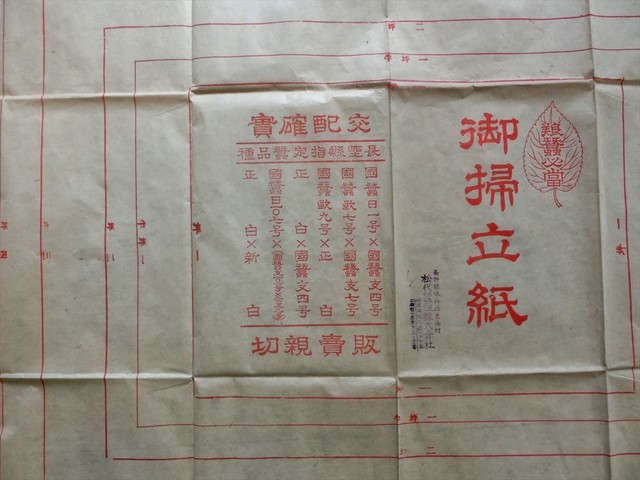 二坪
一坪半
蠶必當
御掃立紙
松代
交配確實
長埜縣指定蠶品種
國蠶日一号×國蠶支四号
國蠶歐七号×國蠶支七号
國蠶歐九号×正白
正白×國蠶支四号
國蠶日一〇七号×國蠶
正白×新白
販賣親切
一坪半
二坪